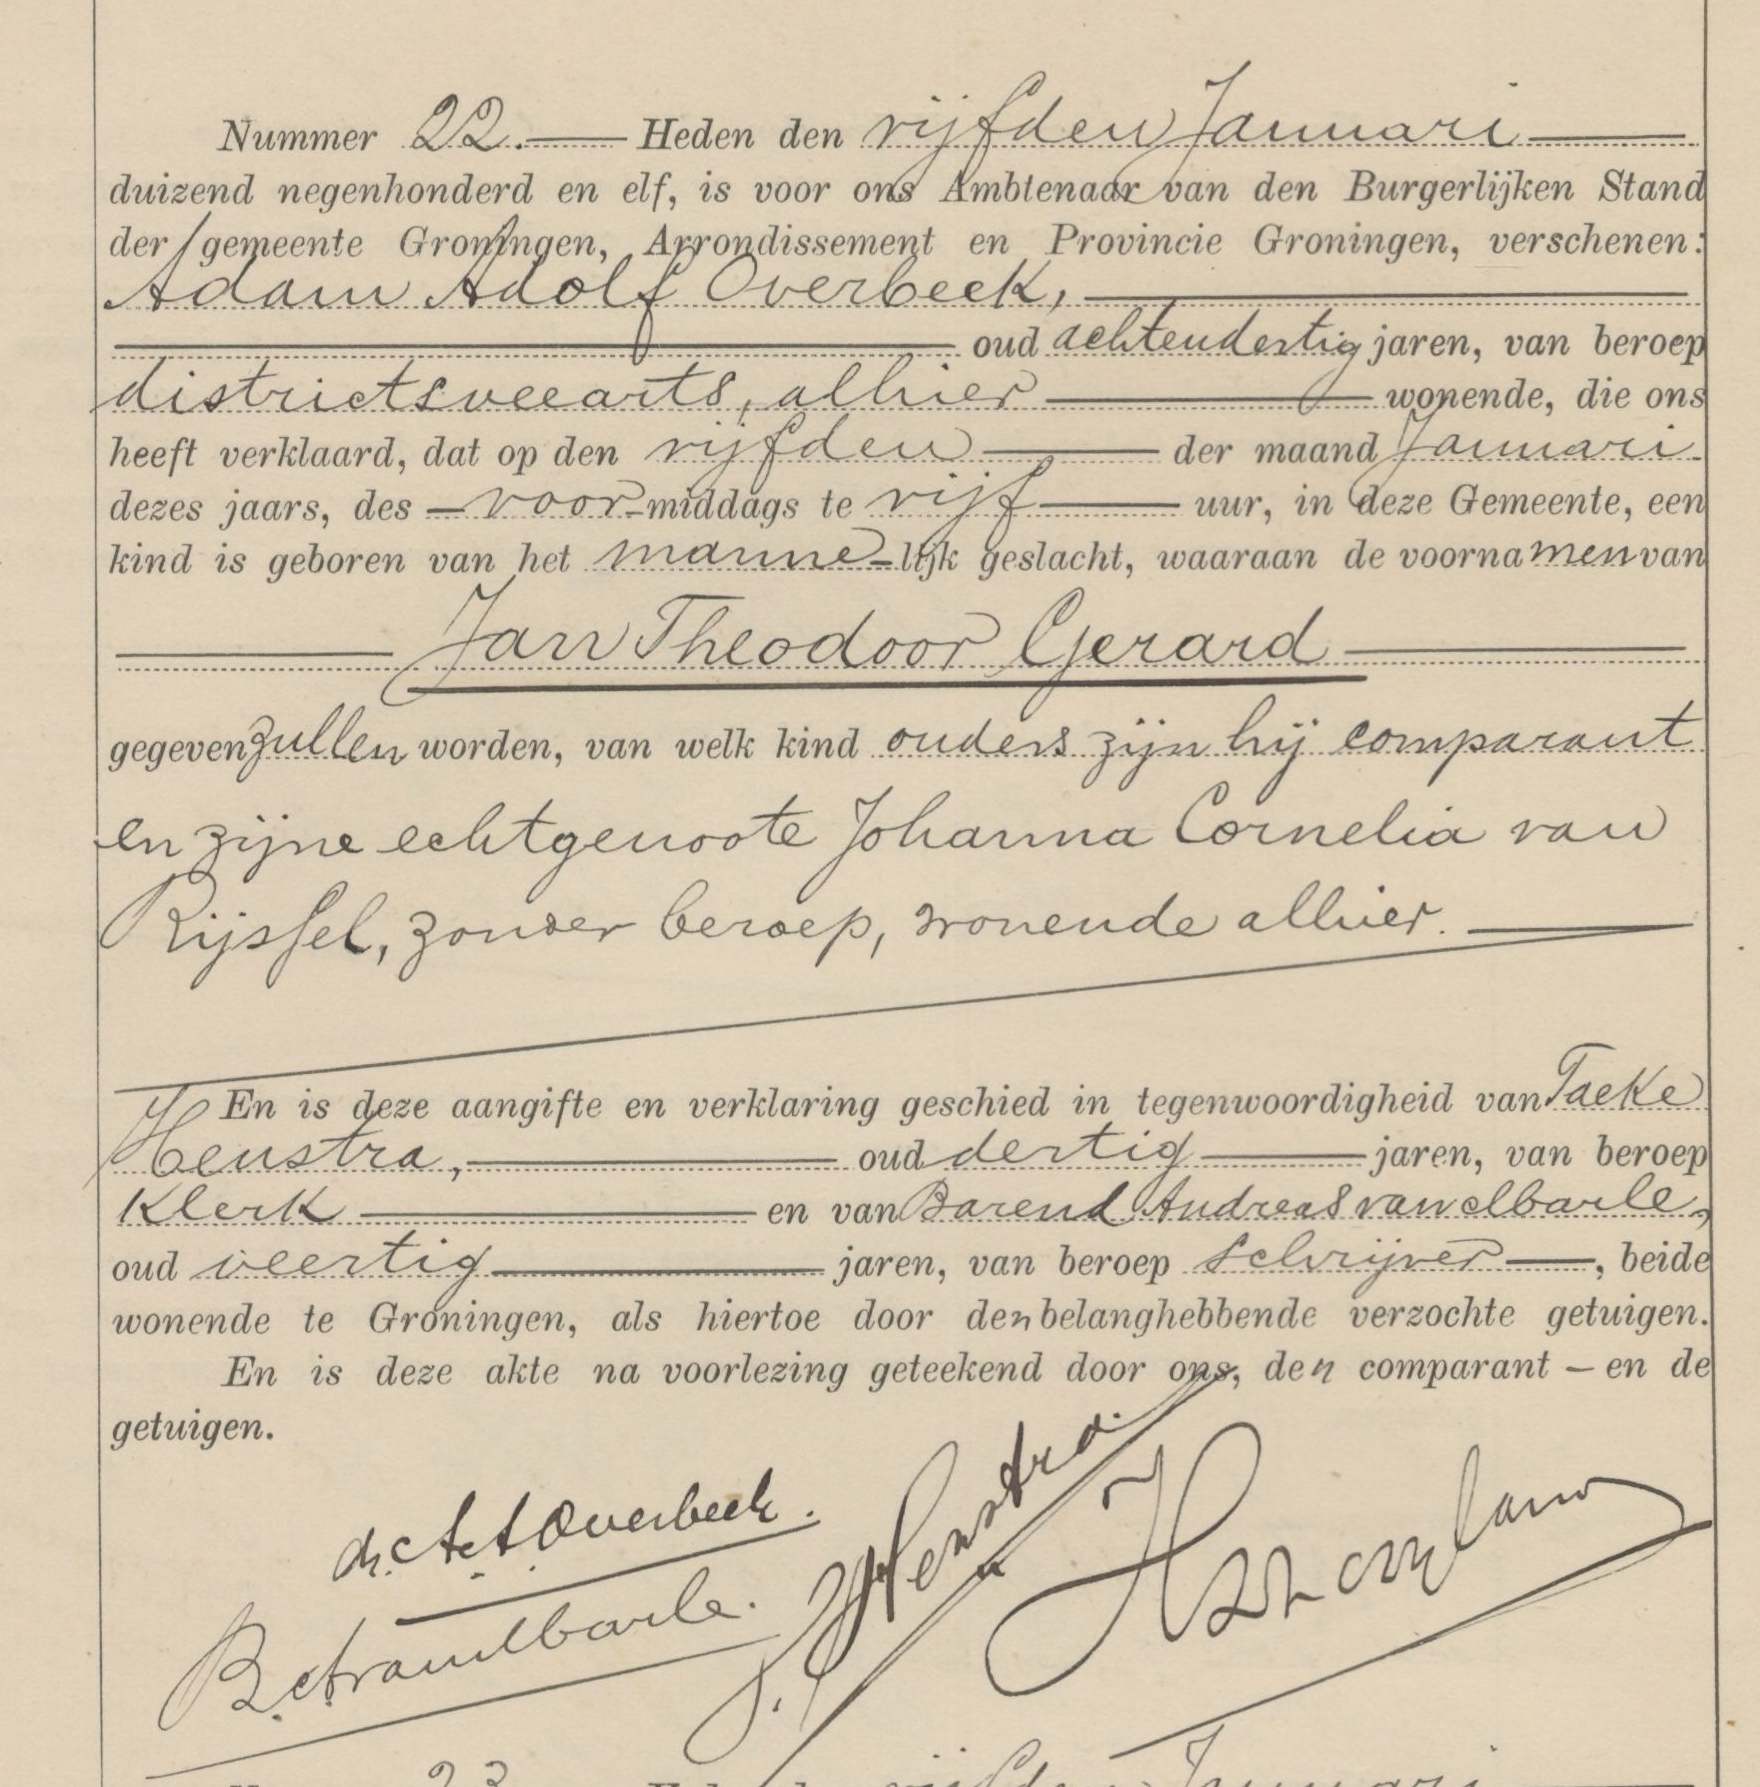 Nummer 22. Heden den vijfden Januari
duizend negenhonderd en elf, is voor ons Ambtenaar van den Burgerlijken Stand
der gemeente Groningen, Arrondissement en Provincie Groningen, verschenen:
Adam Adolf Overbeek,
oud achtendertig jaren, van beroep
districtsveearts, alhier wonende, die ons
heeft verklaard, dat op den vijfden der maand Januari
dezes jaars, des voor-middags te vijf uur, in deze Gemeente, een
kind is geboren van het manne-lijk geslacht, waaraan de voornamen van
Jan Theodoor Gerard
gegeven zullen worden, van welk kind ouders zijn hij comparant
en zijne echtgenoote Johanna Cornelia van
Rijssel, zonder beroep, wonende alhier.
En is deze aangifte en verklaring geschied in tegenwoordigheid van Taeke
Heustra, oud dertig jaren, van beroep
klerk en van Barend Andreas van Abarle,
oud veertig jaren, van beroep schrijver, beide
wonende te Groningen, als hiertoe door den belanghebbende verzochte getuigen.
En is deze akte na voorlezing geteekend door ons, den comparant – en de
getuigen.
A. A. Overbeek.
Heustra.
23 vijfden Januari